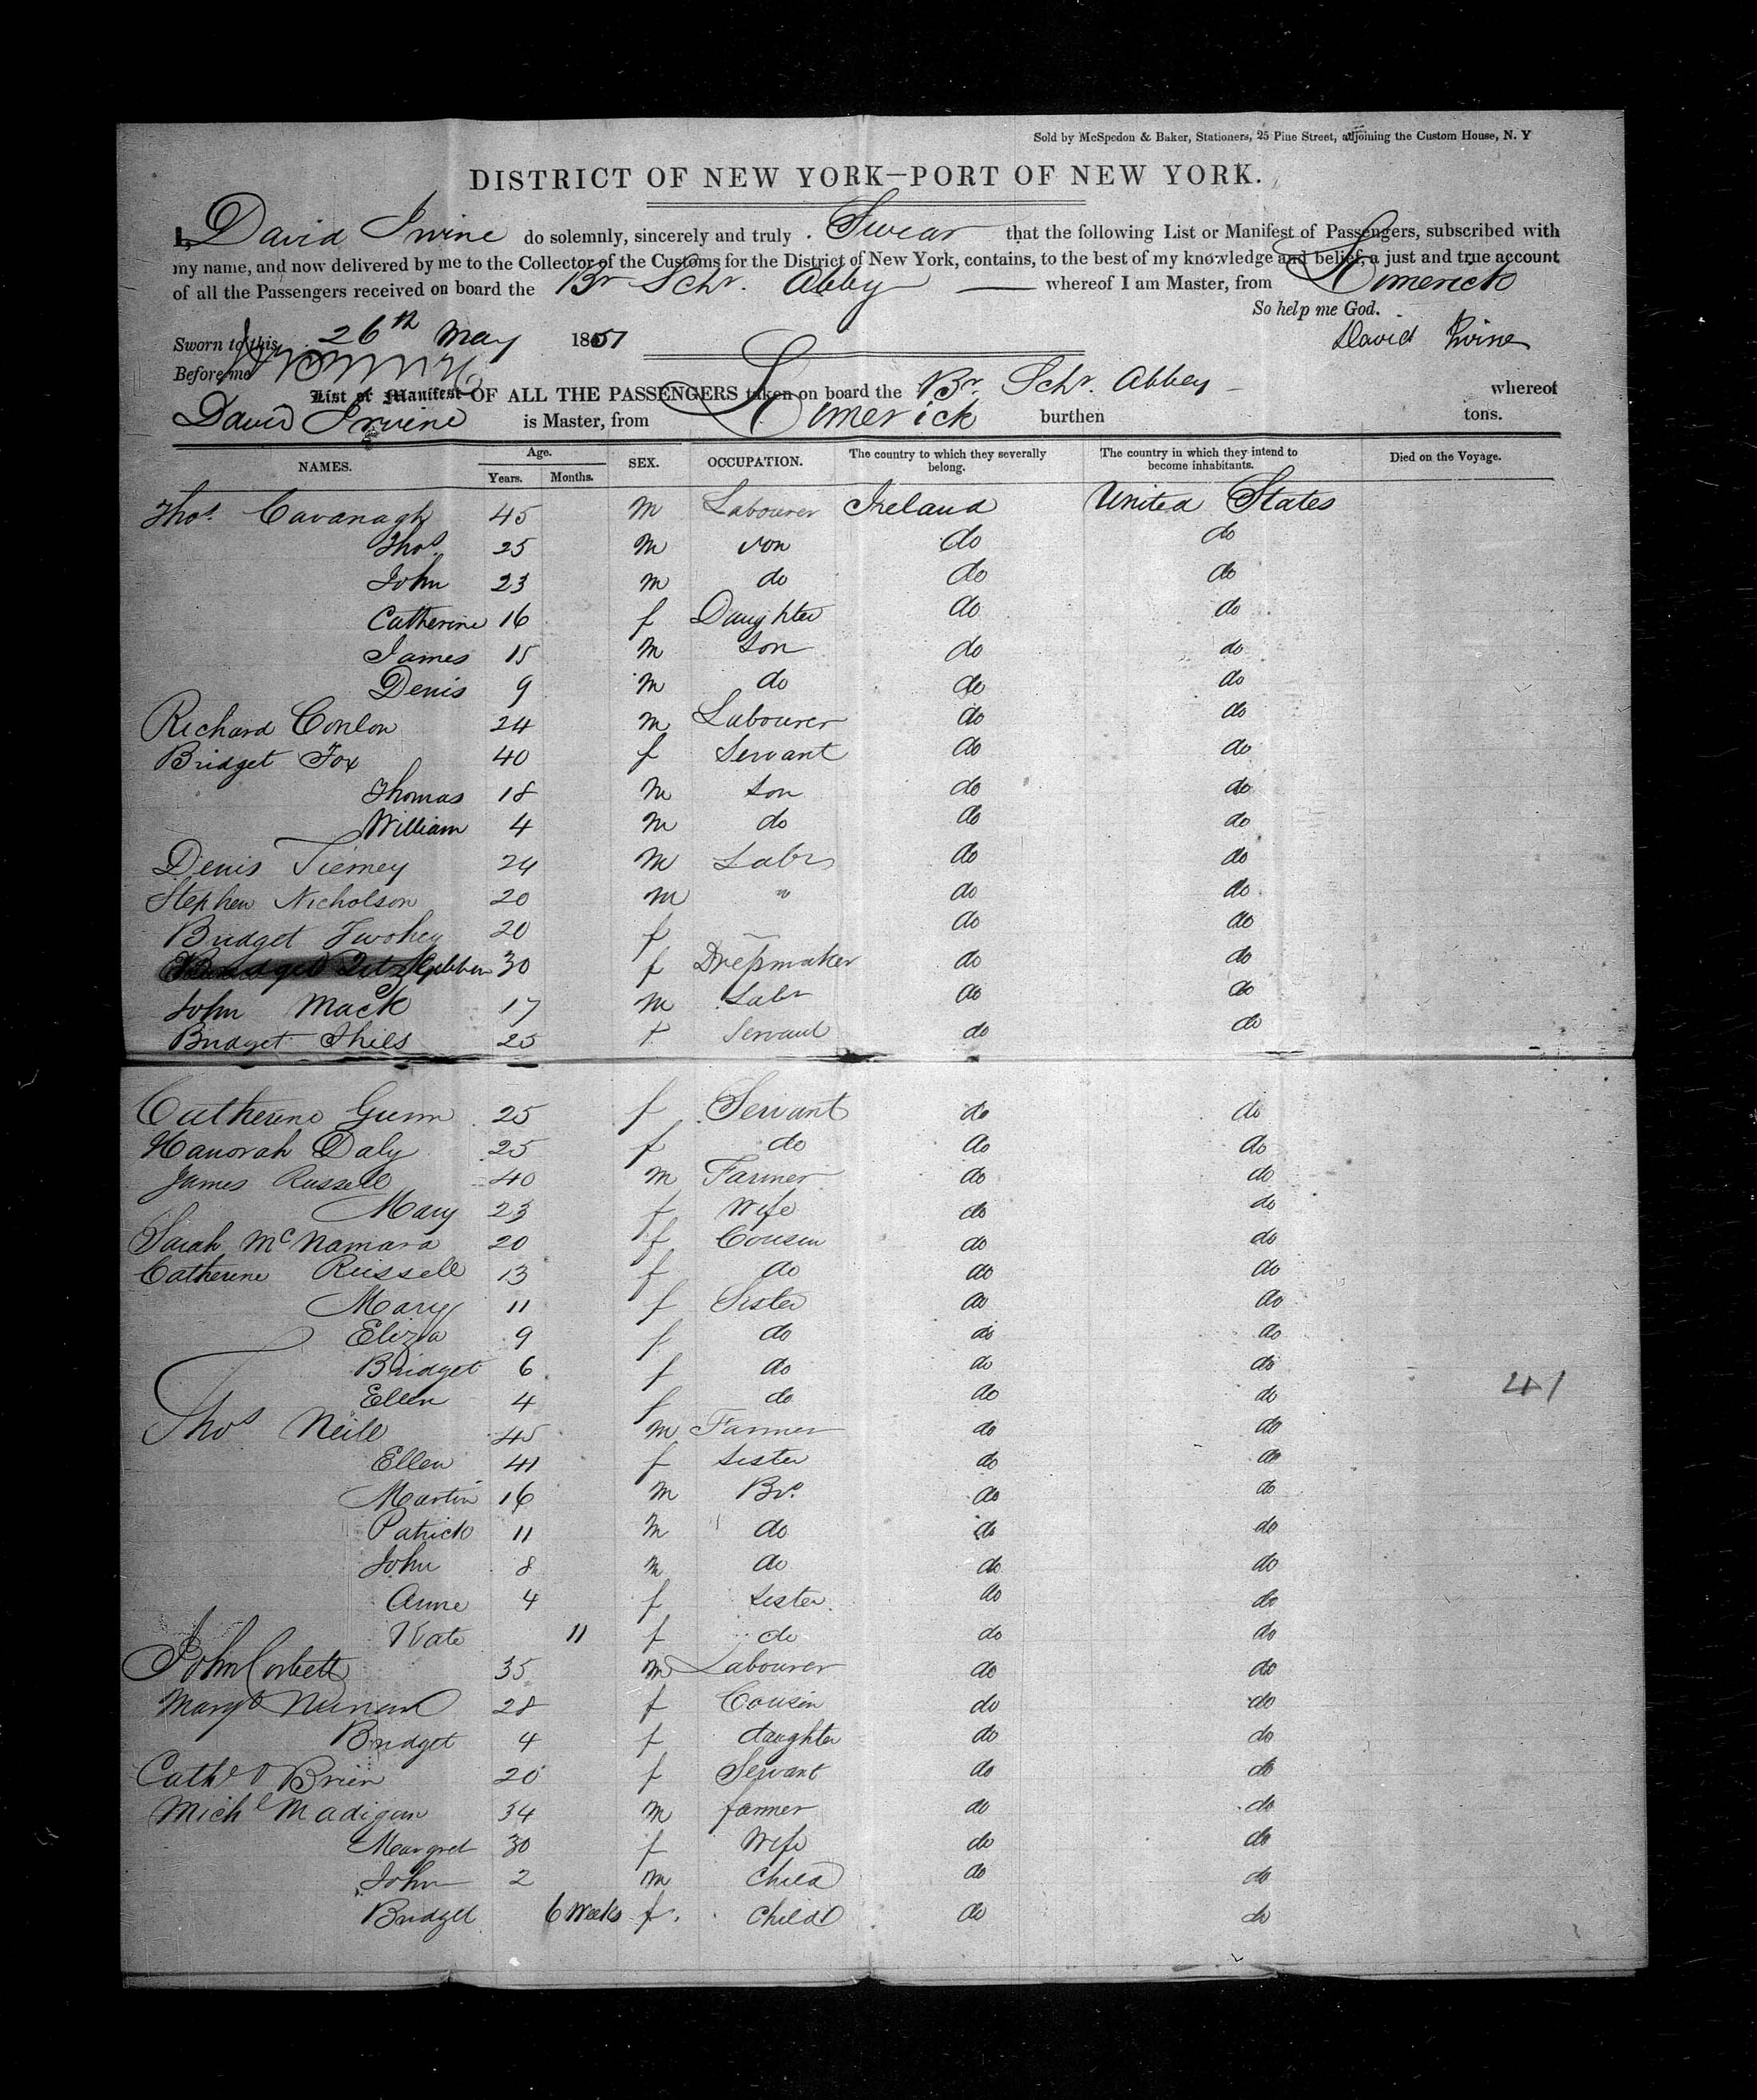 Sold by McSpedon & Baker, Stationers, 25 Pine Street, adjoining the Custom House, N. Y
DISTRICT OF NEW YORK—PORT OF NEW YORK.
I, David Irvine do solemnly, sincerely and truly Swear that the following List or Manifest of Passengers, subscribed with
my name, and now delivered by me to the Collector of the Customs for the District of New York, contains, to the best of my knowledge and belief, a just and true account
of all the Passengers received on board the Br Schr. Abbey whereof I am Master, from Limerick
So help me God.
Sworn to this 26th May 1851 David Irvine
Before me
List or Manifest OF ALL THE PASSENGERS taken on board the Br. Schr. Abbey whereof
David Irvine is Master, from Limerick burthen tons.
NAMES. Age. Years. Months. SEX. OCCUPATION. The country to which they severally belong. The country in which they intend to become inhabitants. Died on the Voyage.
Thos. Cavanagh 45 m Labourer Ireland United States
Thos. 25 m son do do
John 23 m do do do
Catherine 16 f Daughter do do
James 15 m son do do
Denis 9 m do do do
Richard Conlon 24 m Labourer do do
Bridget Fox 40 f Servant do do
Thomas 18 m son do do
William 4 m do do do
Denis Tierney 24 m Labr do do
Stephen Nicholson 20 m " do do
Bridget Twohey 20 f do do
30 f Dressmaker do do
John Mack 17 m Labr do do
Bridget 25 f Servant do do
Catherine Gunn 25 f Servant do do
Hanorah Daly 25 f do do do
James Russell 40 m Farmer do do
Mary 23 f Wife do do
Sarah McNamara 20 f Cousin do do
Catherine Russell 13 f do do do
Mary 11 f Sister do do
Eliza 9 f do do do
Bridget 6 f do do do
Ellen 4 f do do do 41
Thos Neill 45 m Farmer do do
Ellen 41 f sister do do
Martin 16 m Bro. do do
Patrick 11 m do do do
John 8 m do do do
Anne 4 f sister do do
Kate 11 f do do do
John Corbett 35 m Labourer do do
Margt 28 f Cousin do do
Bridget 4 f daughter do do
Cathe O Brien 20 f Servant do do
Michl Madigan 34 m farmer do do
Margret 30 f Wife do do
John 2 m Child do do
Bridget 6 Weeks f. Child do do